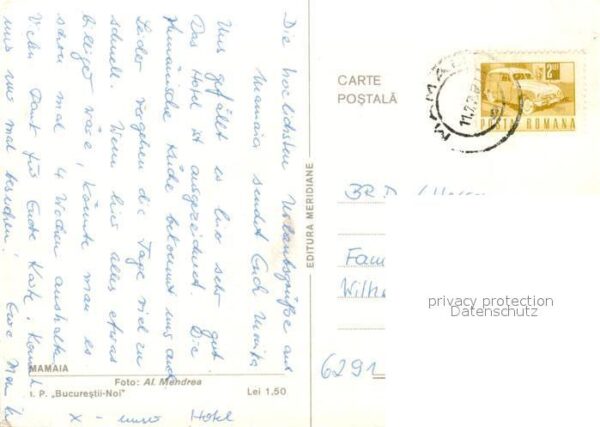 Die herzlichsten Urlaubsgrüße aus
Mamaia sendet Euch Monika
Uns gefällt es hier sehr gut
Das Hotel ist ausgezeichnet. Die
rumänische Küche bekommt uns auch
Leider vergehen die Tage viel zu
schnell. Wenn hier alles etwas
billiger wäre, könnte man es
schon mal 4 Wochen aushalten
Vielen Dank für Eure Karte.
uns nur mal
MAMAIA
Foto: Al. Mendrea
I. P. „Bucureştii-Noi"
Lei 1,50
x - unser Hotel
EDITURA MERIDIANE
CARTE
POŞTALĂ
MAMAIA
POSTA ROMANA
BRD
Fam
Wilh
6291
privacy protection
Datenschutz